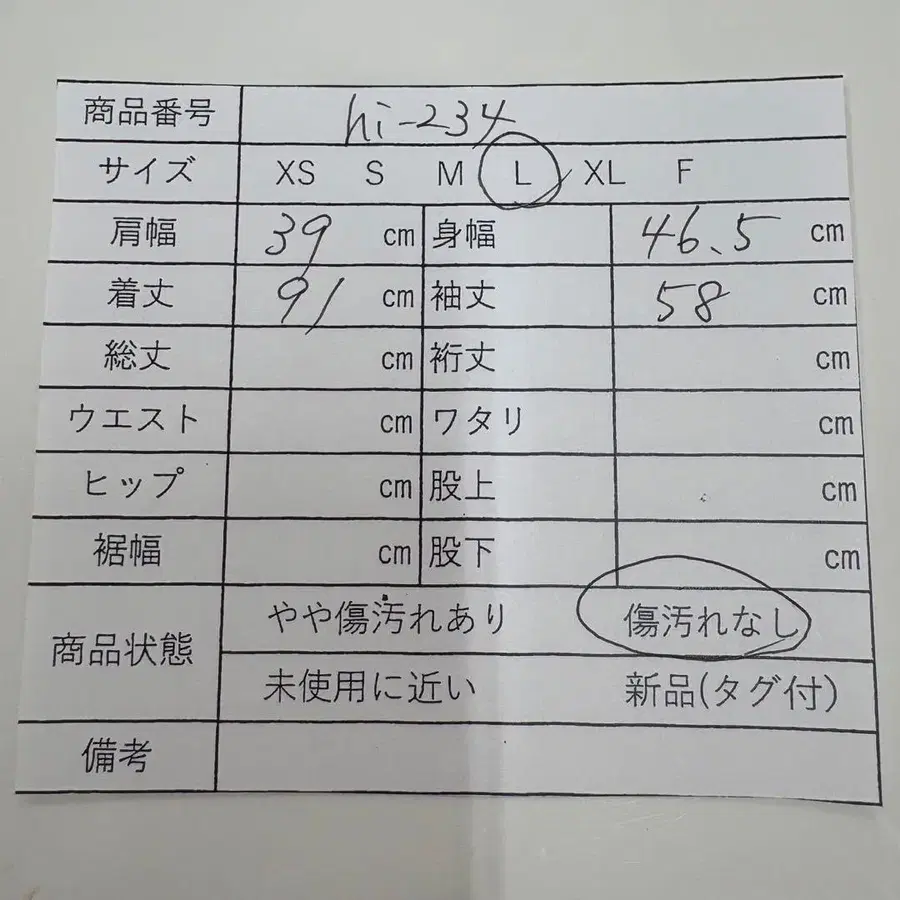 商品番号 hi-234
サイズ XS S M L XL F
肩幅 39 cm 身幅 46.5 cm
着丈 91 cm 袖丈 58 cm
総丈 cm 裄丈 cm
ウエスト cm ワタリ cm
ヒップ cm 股上 cm
裾幅 cm 股下 cm
商品状態 やや傷汚れあり 傷汚れなし
未使用に近い 新品(タグ付)
備考